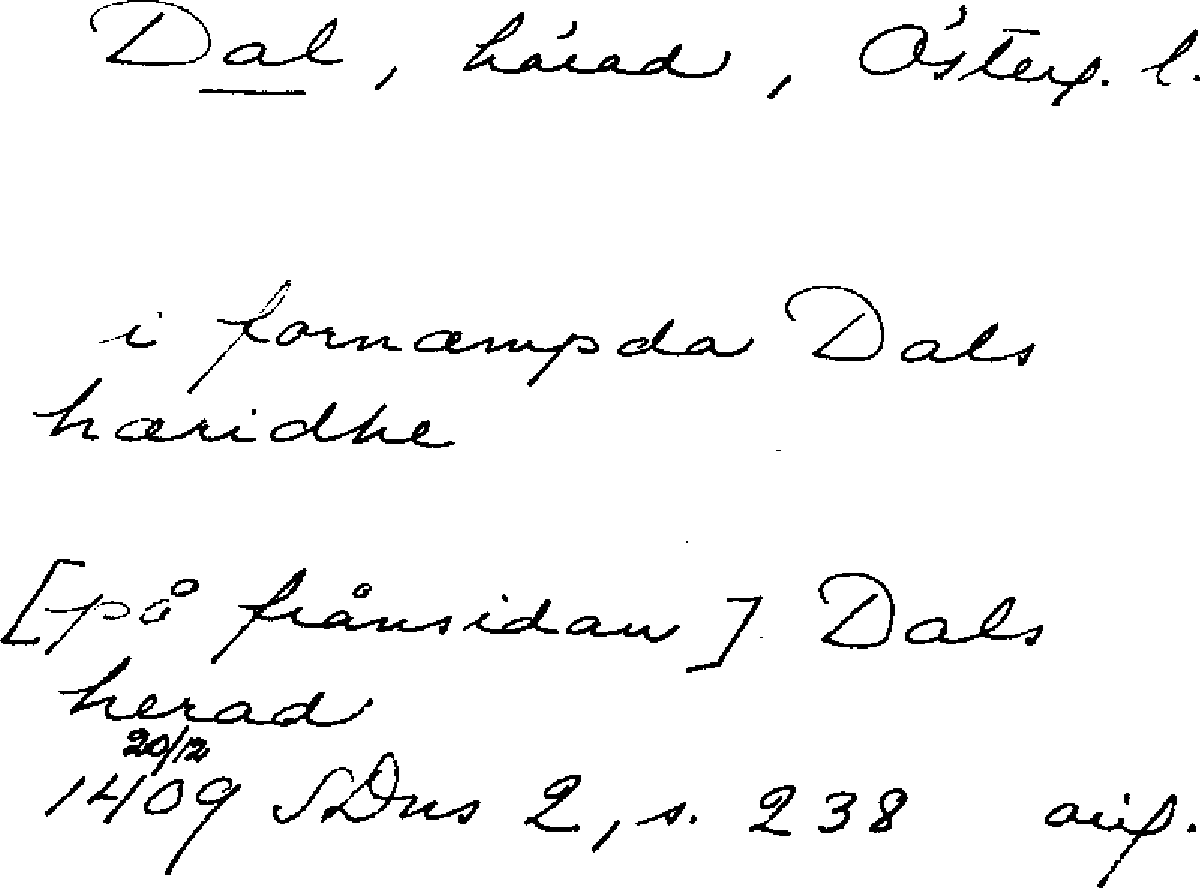 Dal, härad, Österg. l.
i fornæmpda Dals
hæridhe
[på frånsidan] Dals
herad
20/12
1409 SDns 2, s. 238 orig.